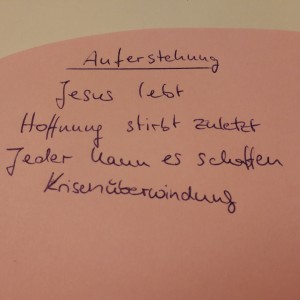 Auferstehung
Jesus lebt
Hoffnung stirbt zuletzt
Jeder kann es schaffen
Krisenüberwindung